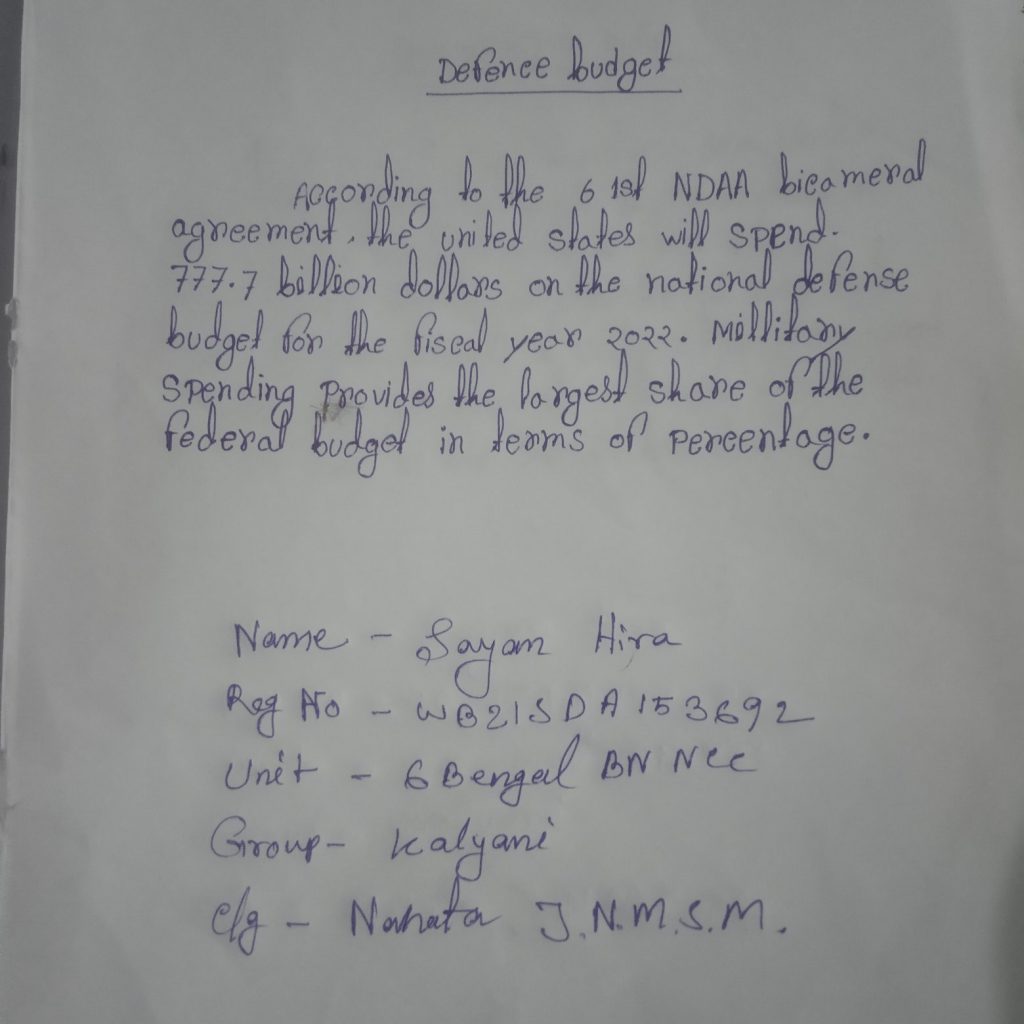 Defence budget
According to the 61st NDAA bicameral
agreement, the united states will spend.
777.7 billion dollars on the national defense
budget for the fiscal year 2022. Millitary
spending provides the largest share of the
federal budget in terms of percentage.
Name - Sayan Hira
Reg No - WB21SDA153692
Unit - 6 Bengal BN NCC
Group - Kalyani
clg - Nahata J.N.M.S.M.